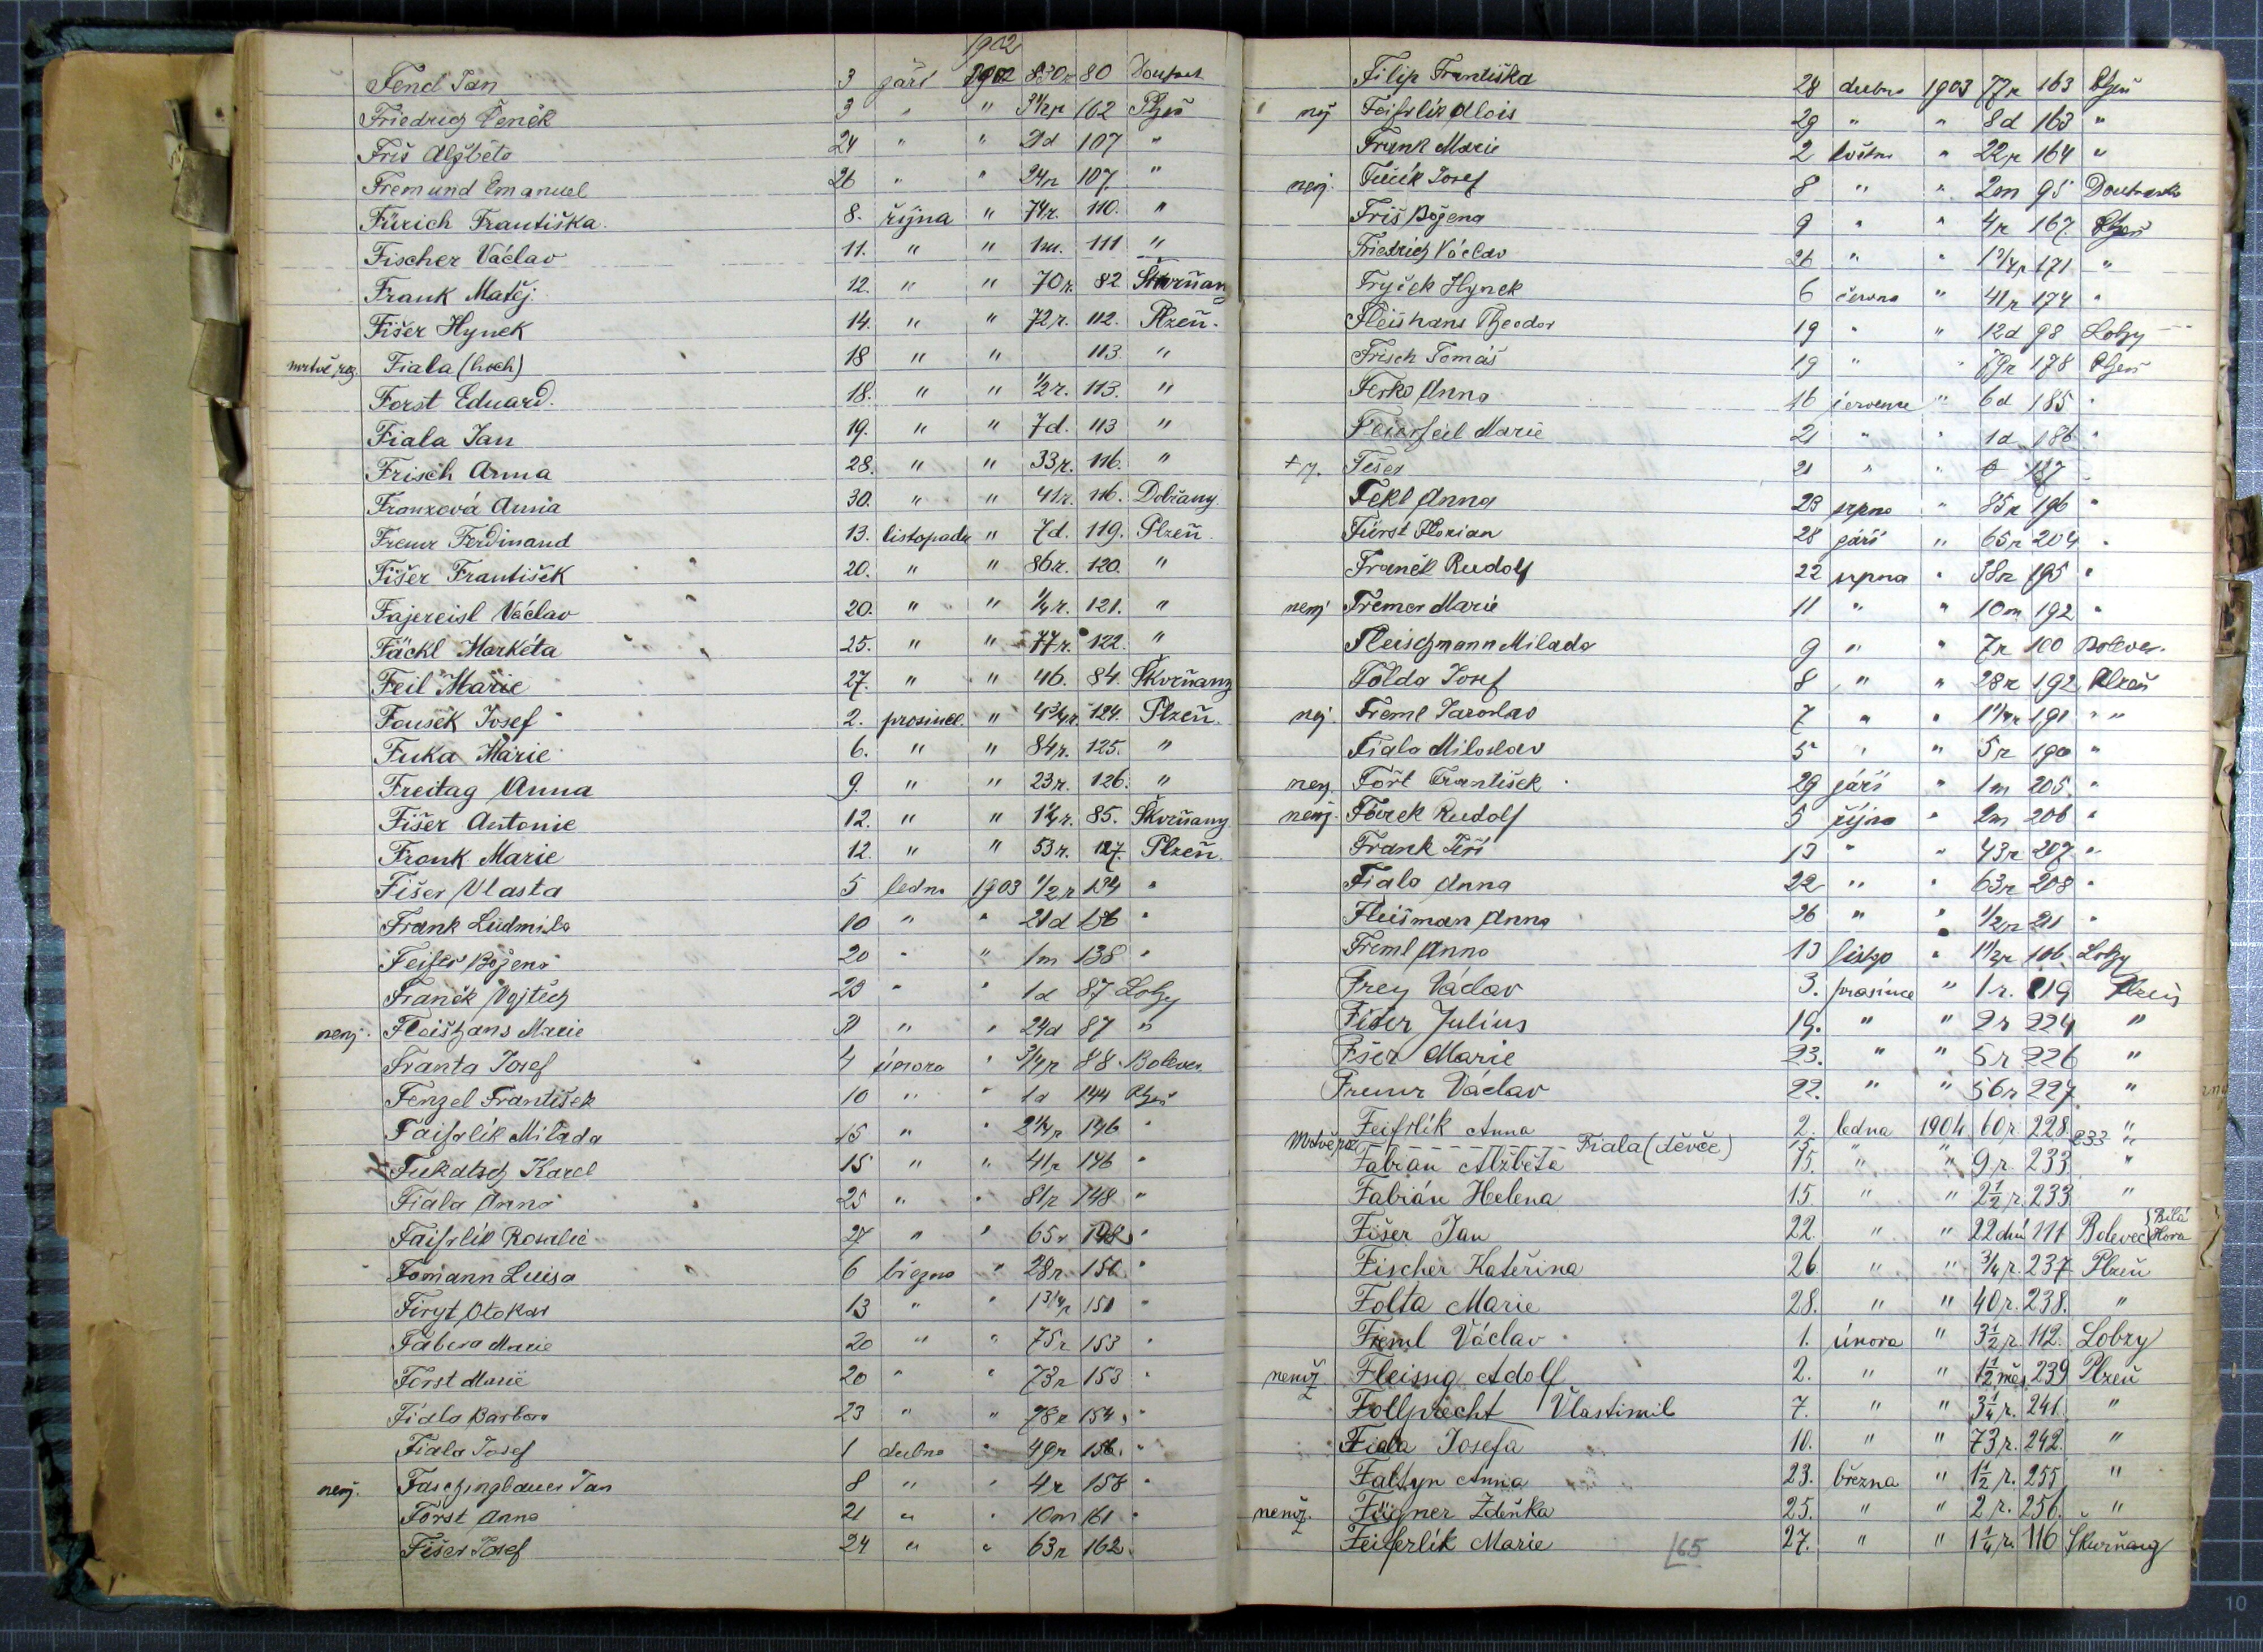 1902
Fencl Jan 3 září 1902 80
Friedrich Čeněk 3 " " 3 1/2 r 102 Plzeň
Friš Alžběta 24 " " 2d 107 "
Fremund Emanuel 26 " " 24r 107. "
Fürich Františka. 8. října " 74r. 110. "
Fischer Václav 11. " " 1m. 111 "
Frank Matěj. 12. " " 70r. 82 Skvrňan
Fišer Hynek 14. " " 72r. 112. Plzeň.
Fiala (hoch) 18 " " 113. "
Forst Eduard. 18. " " 1/2 r. 113. "
Fiala Jan 19. " " 7d. 113 "
Frisch Anna 28. " " 33r. 116. "
Franzová Anna 30. " " 41r. 116. Dobřany.
Fremr Ferdinand 13. listopadu " 7d. 119. Plzeň.
Fišer František 20. " " 86r. 120. "
Fajereisl Václav 20. " " 1/4 r. 121. "
Fäckl Markéta 25. " " 77r. 122. "
Feil Marie 27. " " 46. 84. Skvrňany
Fousek Josef 2. prosince " 4 3/4 r. 124. Plzeň.
Fuka Marie 6. " " 84r. 125. "
Freitag Anna 9. " " 23r. 126. "
Fišer Antonie 12. " " 1 1/4 r. 85. Skvrňany
Frank Marie 12. " " 53r. 127. Plzeň.
Fišer Vlasta 5 ledna 1903 1/2 r 134 "
Frank Ludmila 10 " " 21d 136 "
Božena 20 " " 1m 138 "
Franěk Vojtěch 23 " " 1d 87 Lobzy
nenj. Fleišhans Marie " " 24d 87 "
Franta Josef 4 února " 3/4 r 88 Bolevec
Fenzel František 10 " " 1d 144 Plzeň
Faifrlík Milada 15 " " 2 1/4 r 146 "
Fukatsch Karel 15 " " 41r 146 "
Fiala Anna 25 " " 81r 148 "
Faifrlík Rosalie 27 " " 65r "
Fomann Luisa 6 března " 28r 150 "
Firyt Otokar 13 " " 1 3/4 r 151 "
Fabera Marie 20 " " 75r 153 "
Forst Marie 20 " " 73r 153 "
Fiala Barbora 23 " " 78r 154 "
Fiala Josef 1 dubna " 49r 156. "
nenj. Faschingbauer Jan 8 " " 4r 158 "
Forst Anna 21 " " 10m 161 "
Fišer Josef 24 " " 63r 162 "
Filip Františka 28 dubna 1903 77r 163 Plzeň
Feifrlík Alois 29 " " 8d 163 "
Frank Marie 2 května " 22r 164 "
nenj. Josef 8 " " 2m 95 Doubravka
Friš Božena 9 " " 4r 167 Plzeň
Friedrich Václav 26 " " 171 "
Fryček Hynek 6 června " 41r 174 "
Fleishans Theodor 19 " " 12d 98 Lobzy
Frisch Tomáš 19 " " 79r 178 Plzeň
Ferko Anna 16 července " 6d 185 "
Feierfeil Marie 21 " " 1d 186 "
Fišer 21 " " 187
Fekl Anna 23 srpna " 85r 196 "
Fürst Florian 28 září " 65r 204 "
Franěk Rudolf 22 srpna " 38r 195 "
nenj Fremer Marie 11 " " 10m 192 "
Fleischmann Milada 9 " " 7r 100 Bolevec.
Folda Josef 8 " " 28r 192 Plzeň
Freml Jaroslav 7 " " 191 " "
Fiala Miloslav 5 " " 5r 190 "
nenj. Fořt František 29 září " 1m 205. "
nenj. Rudolf 5 října " 2m 206 "
Frank Jiří 13 " " 43r 207 "
Fiala Anna 22 " " 63r 208 "
Fleišman Anna 26 " " 1/2 r 211 "
Freml Anna 13 listop " 1 1/2 r 106 Lobzy
Frey Václav 3. prosince " 1 r. 219 Plzeň
Fišer Julius 19. " " 2 r 224 "
Fišer Marie 23. " " 5 r 226 "
Fremr Václav 22. " " 56r 227 "
Feifrlík Anna 2. ledna 1904 60r. 228 "
Mrtvě roz - - - - - Fiala (děvče) 15 " " 233 "
Fabian Alžběta 15. " " 9 r. 233 "
Fabián Helena 15 " " 2 1/2 r. 233 "
Fišer Jan 22. " " 22 dnů 111 Bolevec {Bílá Hora
Fischer Kateřina 26. " " 3/4 r. 237 Plzeň
Folta Marie 28. " " 40r. 238. "
Freml Václav 1. února " 3 1/2 r. 112. Lobzy
Fleissig Adolf 2. " " 1 1/2 měs 239 Plzeň
Follprecht Vlastimil 7. " " 3 1/4 r. 241. "
Fiala Josefa 10. " " 73r. 242. "
Faltyn Anna 23. března " 1 1/2 r. 255 "
Fügner Zdeňka 25. " " 2 r. 256. "
Feiferlík Marie 27. " " 1 1/4 r. 116 Skvrňany
165
10